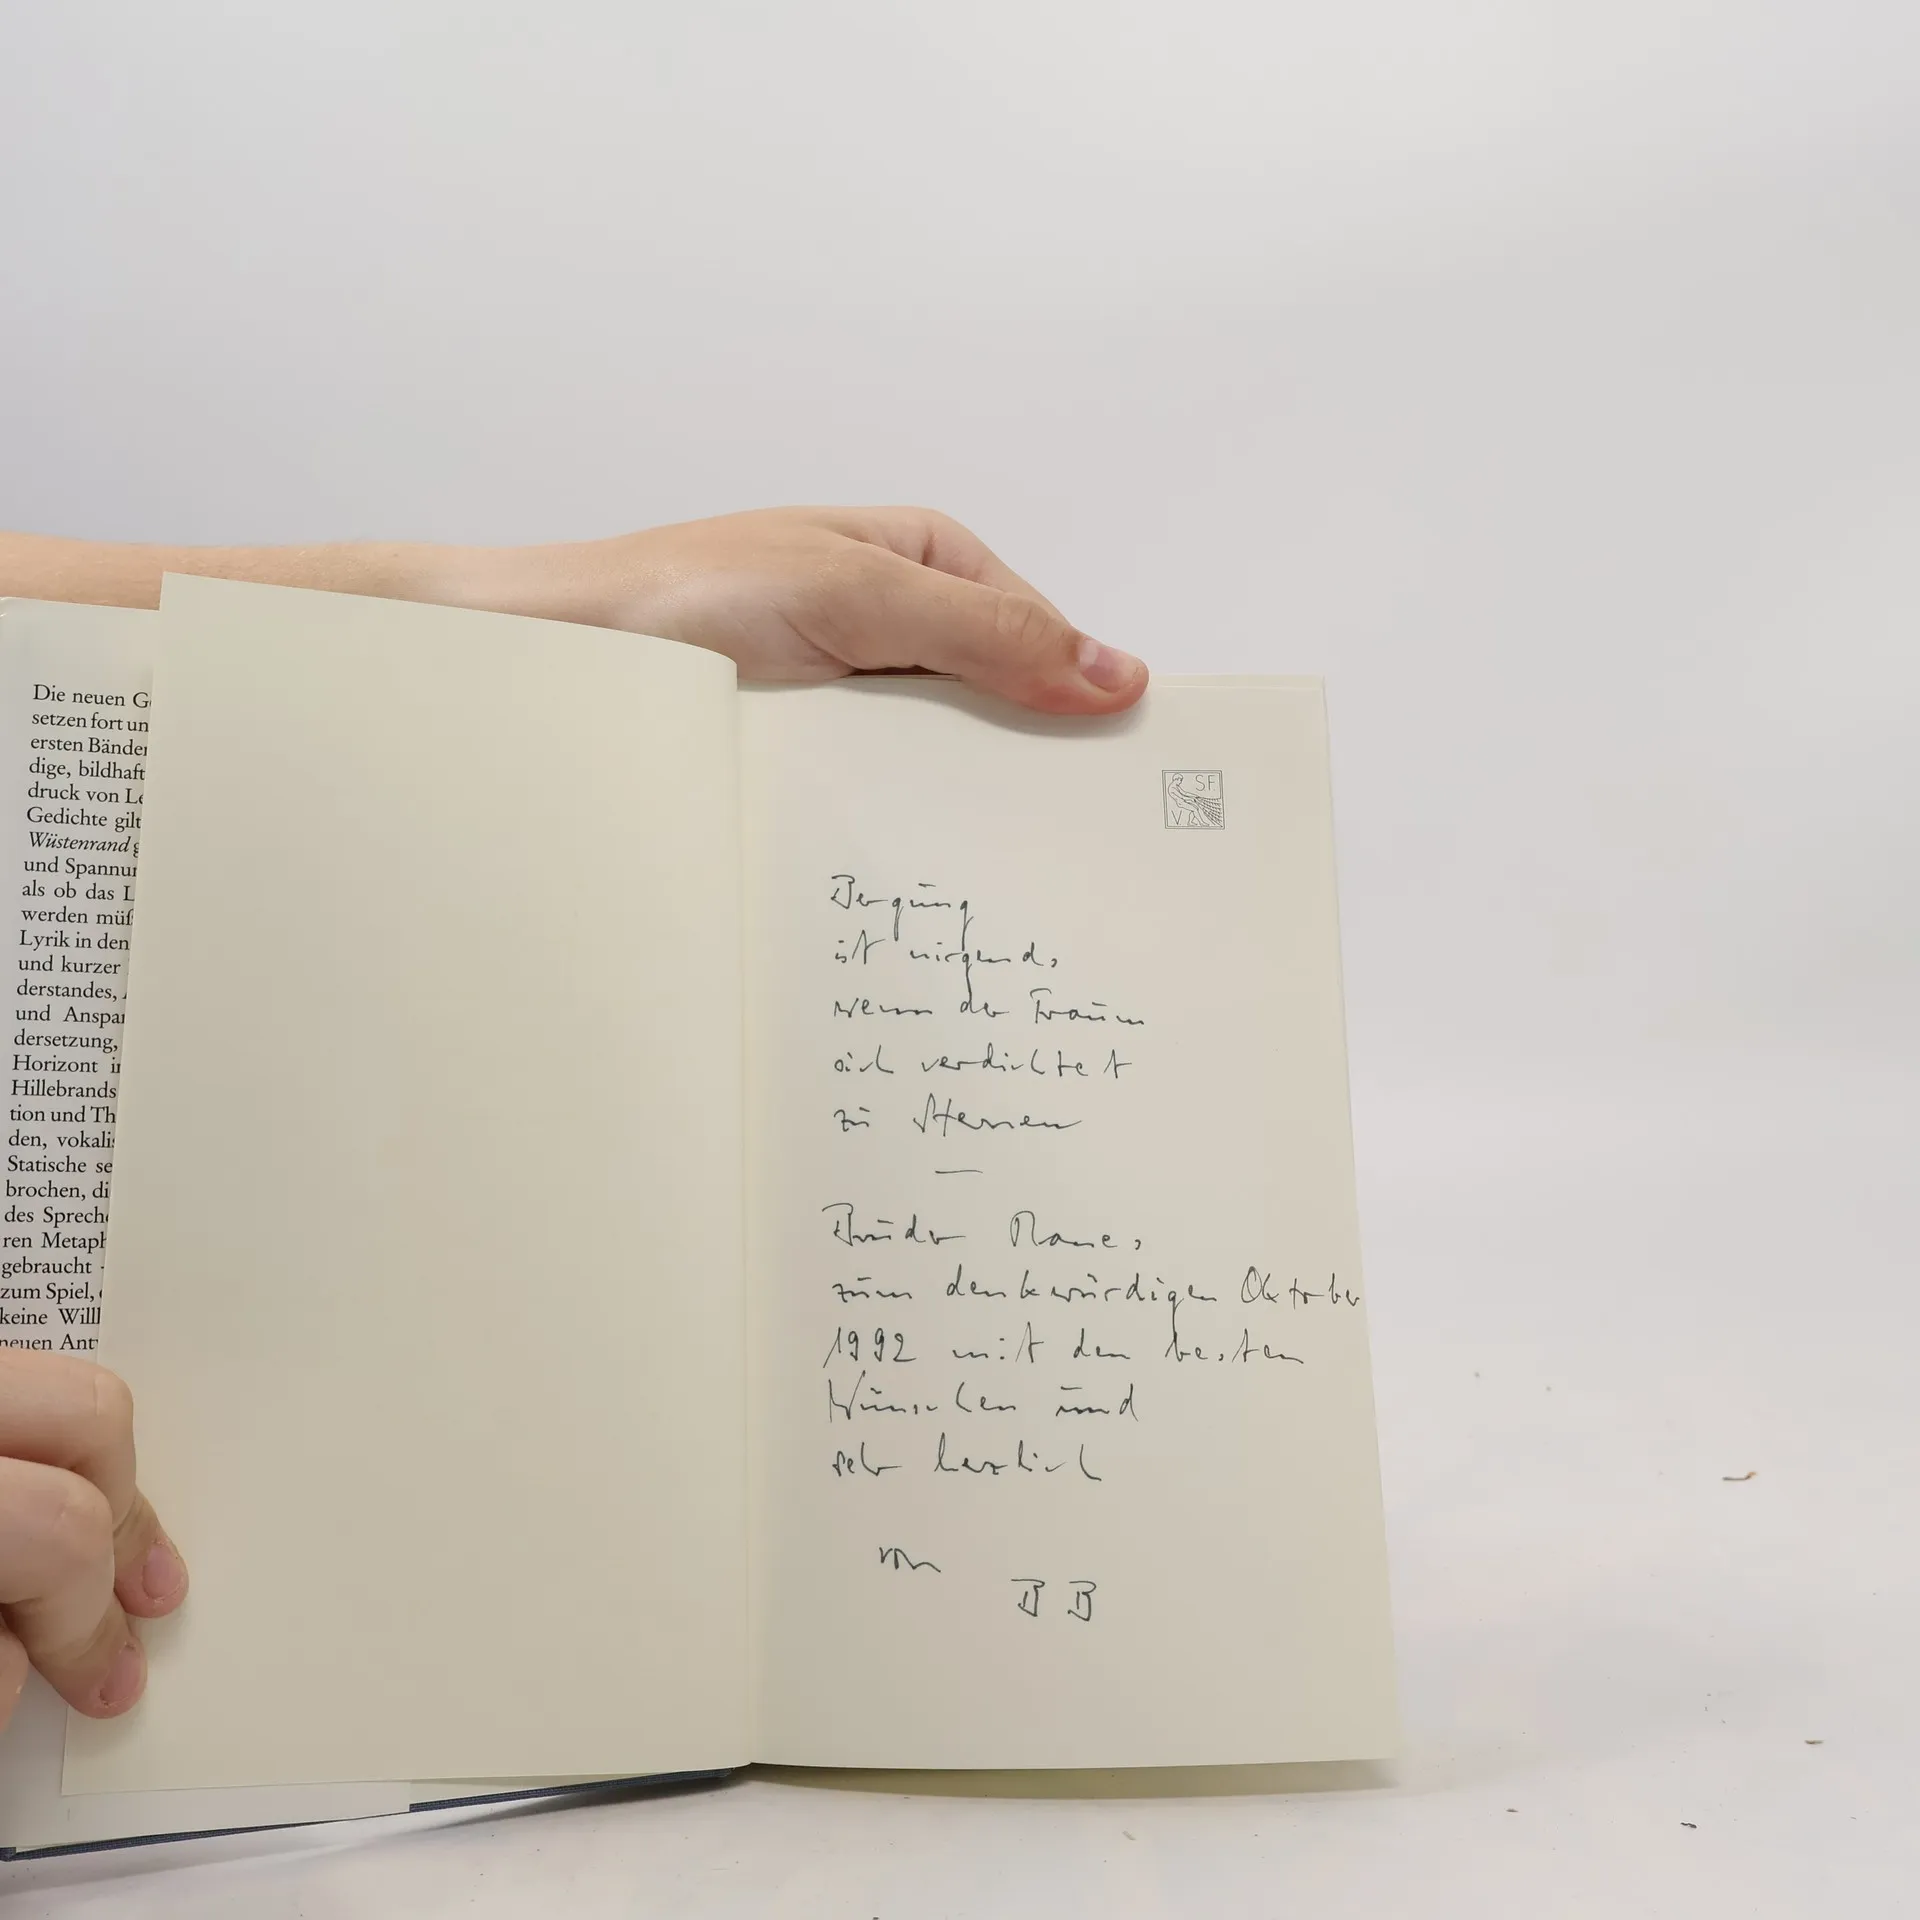 Die neuen G
setzen fort un
ersten Bänden
dige, bildhaft
druck von Le
Gedichte gilt
Wüstenrand g
und Spannun
als ob das L
werden müß
Lyrik in den
und kurzer
derstandes,
und Anspan
dersetzung,
Horizont in
Hillebrands
tion und Th
den, vokalis
Statische se
brochen, di
des Spreche
ren Metaph
gebraucht -
zum Spiel,
keine Willk
neuen Ant
SF
V
Bergung
ist nirgends
wenn der Traum
sich verdichtet
zu Sternen
—
Bruder
zum denkwürdigen Oktober
1992 mit den besten
Wünschen und
sehr herzlich
von
B B